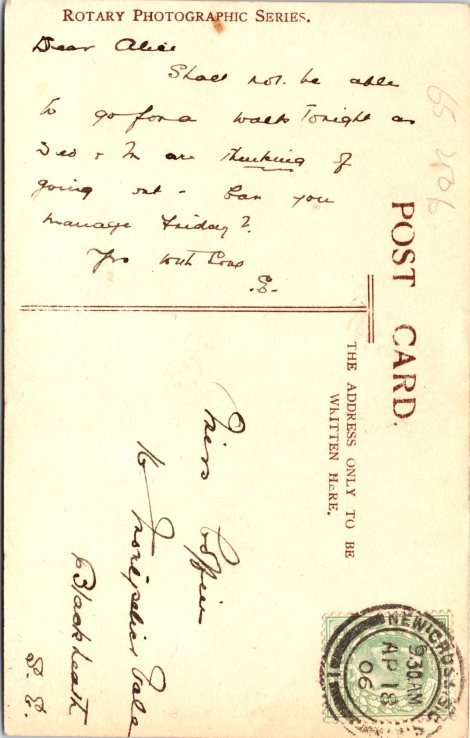 ROTARY PHOTOGRAPHIC SERIES.
Dear Alice
Shall not be able
to go for a walk Tonight as
Ded & M are thinking of
going out - Can you
manage Friday?
Yrs with Love
.E.
POST CARD.
THE ADDRESS ONLY TO BE
WRITTEN HERE.
Miss
16
Blackheath
S.E.
NEW CROSS S.E.
9.30 AM
AP 18
06